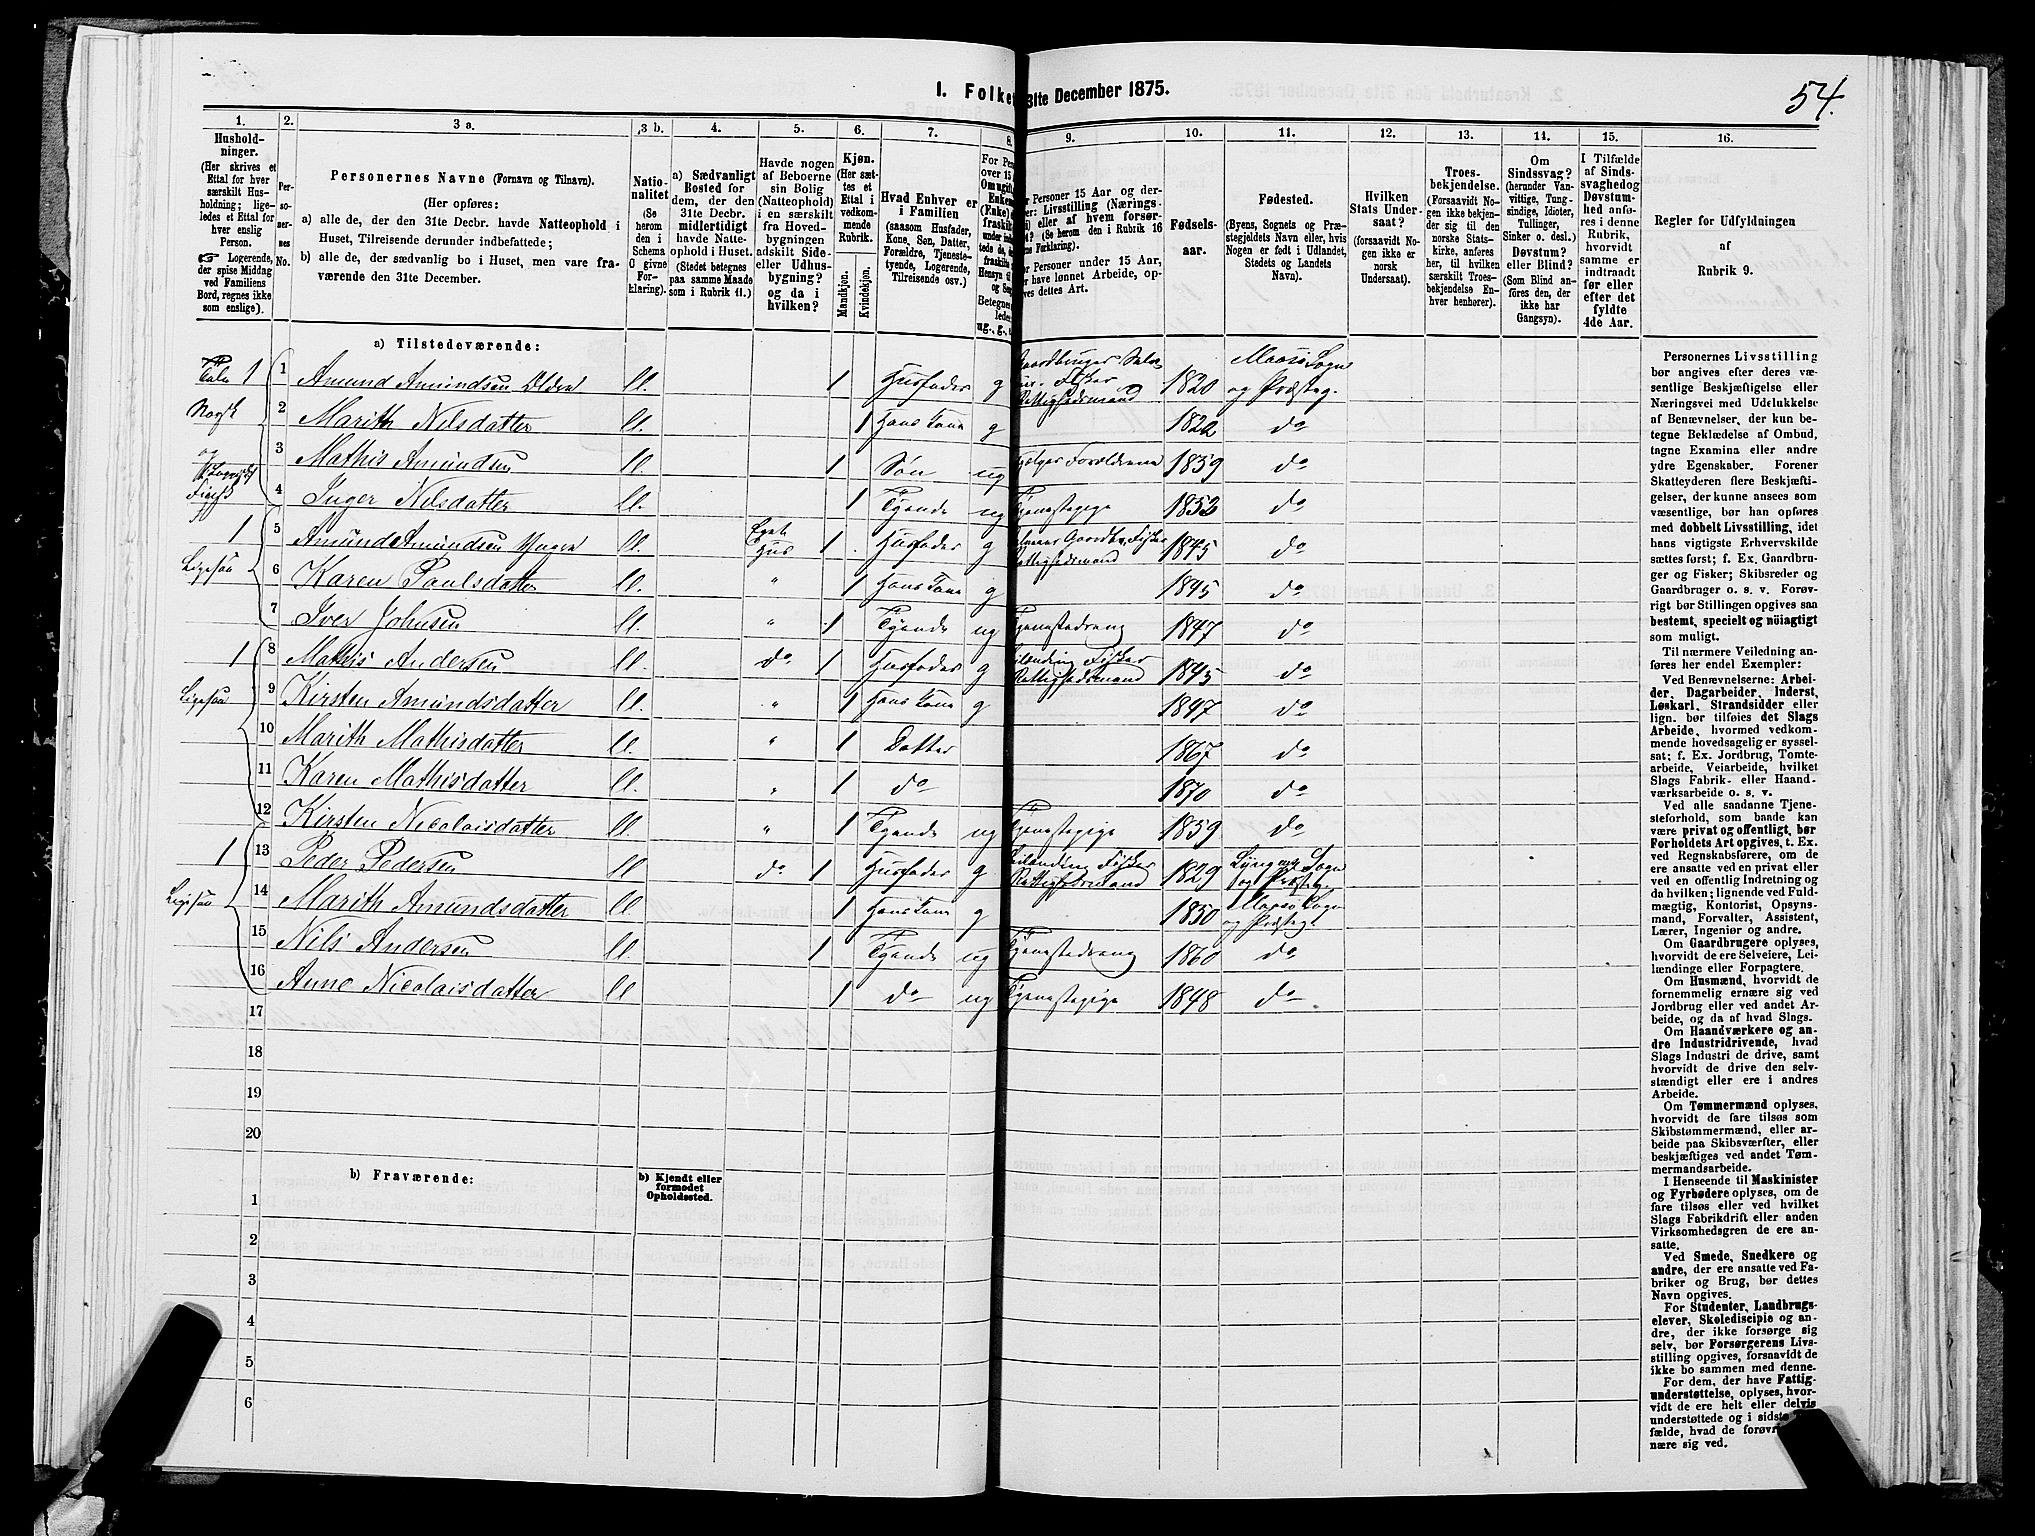 54.
1. Folke 31te December 1875.
1.
Hushold-
ninger.
(Her skrives et
Ettal for hver
særskilt Hus-
holdning; lige-
ledes et Ettal for
hver enslig
Person.
☞ Logerende,
der spise Middag
ved Familiens
Bord, regnes ikke
som enslige).
2.
Per-
so-
ner-
nes
No.
3 a.
Personernes Navne (Fornavn og Tilnavn).
(Her opføres:
a) alle de, der den 31te Decbr. havde Natteophold i
Huset, Tilreisende derunder indbefattede;
b) alle de, der sædvanlig bo i Huset, men vare fra-
værende den 31te December.
3 b.
Natio-
nalitet
(Se
herom
den i
Schema
O givne
For-
klaring).
4.
a) Sædvanligt
Bosted for
dem, der den
31te Decbr.
midlertidigt
havde Natte-
ophold i Huset.
(Stedet betegnes
paa samme Maade
som i Rubrik 11.)
5.
Havde nogen
af Beboerne
sin Bolig
(Natteophold)
i en særskilt
fra Hoved-
bygningen
adskilt Side-
eller Udhus-
bygning?
og da i
hvilken?
6.
Kjøn.
(Her sæt-
tes et
Ettal i
vedkom-
mende
Rubrik.
Mandkjøn.
Kvindekjøn.
7.
Hvad Enhver er
i Familien
(saasom Husfader,
Kone, Søn, Datter,
Forældre, Tjeneste-
tyende, Logerende,
Tilreisende osv.)
8.
For Per
over 15
Omugift
Enken
(Enke)
fraskilt
Hensyn
Betegne
ug., g.,
9.
r Personer 15 Aar og der-
er: Livsstilling (Nærings-
eller af hvem forsør-
? (Se herom den i Rubrik 16
ne Forklaring).
or Personer under 15 Aar,
have lønnet Arbeide, op-
ives dettes Art.
10.
Fødsels-
aar.
11.
Fødested.
(Byens, Sognets og Præ-
stegjeldets Navn eller, hvis
Nogen er født i Udlandet,
Stedets og Landets
Navn).
12.
Hvilken
Stats Under-
saat?
(forsaavidt No-
gen ikke er
norsk
Undersaat).
13.
Troes-
bekjendelse.
(Forsaavidt No-
gen ikke bekjen-
der sig til den
norske Stats-
kirke, anføres
her, til hvilken
særskilt Troes-
bekjendelse En-
hver henhører).
14.
Om
Sindssvag?
(herunder Van-
vittige, Tung-
sindige, Idioter,
Tullinger,
Sinker o. desl.)
Døvstum?
eller Blind?
(Som Blind an-
føres den, der
ikke har
Gangsyn).
15.
I Tilfælde
af Sinds-
svaghed og
Døvstum-
hed anfø-
res i denne
Rubrik,
hvorvidt
samme er
indtraadt
før eller
efter det
fyldte
4de Aar.
16.
Regler for Udfyldningen
af
Rubrik 9.
a) Tilstedeværende:
Tale 1 1 Amund Amundsen Olden ll. 1 Husfader g Gaardbruger Selv- Fisker Rettighedsmand 1820 Maasø Sogn og Præsteg.
Norsk 2 Marith Nilsdatter ll. 1 Hans Kone g 1822 do
og 3 Mathis Amundsen ll. 1 Søn ug Hjælper Forældrene 1859 do
4 Inger Nilsdatter ll. 1 Tyende ug Tjenestepige 1852 do
1 5 Amund Amundsen Yngre ll. Eget Hus 1 Husfader g Gaardb. Fisker Rettighedsmand 1845 do
Ligesaa 6 Karen Paulsdatter ll. " 1 Hans Kone g 1845 do
7 Iver Johnsen ll. " 1 Tyende ug Tjenestedreng 1847 do
1 8 Mathis Andersen ll. do 1 Husfader g Leilænding Fisker Rettighedsmand 1845 do
Ligesaa 9 Kirsten Amundsdatter ll. " 1 Hans Kone g 1847 do
10 Marith Mathisdatter ll. " 1 Datter 1867 do
11 Karen Mathisdatter ll. " 1 do 1870 do
12 Kirsten Nicolaisdatter ll. " 1 Tyende ug Tjenestepige 1859 do
1 13 Peder Pedersen ll do 1 Husfader g Leilænding Fisker Rettighedsmand 1829 Lyngens Sogn og Præsteg.
Ligesaa 14 Marith Amundsdatter ll. 1 Hans Kone g 1850 Maasø Sogn og Præsteg.
15 Nils Andersen ll. 1 Tyende ug Tjenestedreng 1860 do
16 Anne Nicolaisdatter ll 1 do ug Tjenestepige 1848 do
17
18
19
20
b) Fraværende:
b) Kjendt eller
formodet
Opholdssted.
1
2
3
4
5
6
Personernes Livsstilling
bør angives efter deres væ-
sentlige Beskjæftigelse eller
Næringsvei med Udelukkelse
af Benævnelser, der kun be-
tegne Beklædelse af Ombud,
tagne Examina eller andre
ydre Egenskaber. Forener
Skatteyderen flere Beskjæfti-
gelser, der kunne ansees som
væsentlige, bør han opføres
med dobbelt Livsstilling, idet
hans vigtigste Erhvervskilde
sættes først; f. Ex. Gaardbru-
ger og Fisker; Skibsreder og
Gaardbruger o. s. v. Forøv-
rigt bør Stillingen opgives saa
bestemt, specielt og nøiagtigt
som muligt.
Til nærmere Veiledning an-
føres her endel Exempler:
Ved Benævnelserne: Arbei-
der, Dagarbeider, Inderst,
Løskarl, Strandsidder eller
lign. bør tilføies det Slags
Arbeide, hvormed vedkom-
mende hovedsagelig er syssel-
sat; f. Ex. Jordbrug, Tomte-
arbeide, Veiarbeide, hvilket
Slags Fabrik- eller Haand-
værksarbeide o. s. v.
Ved alle saadanne Tjene-
steforhold, som baade kan
være privat og offentligt, bør
Forholdets Art opgives, t. Ex.
ved Regnskabsførere, om de
ere ansatte ved en privat eller
ved en offentlig Indretning og
da hvilken; lignende ved Fuld-
mægtig, Kontorist, Opsyns-
mand, Forvalter, Assistent,
Lærer, Ingeniør og andre.
Om Gaardbrugere oplyses,
hvorvidt de ere Selveiere, Lei-
lændinge eller Forpagtere.
Om Husmænd, hvorvidt de
fornemmelig ernære sig ved
Jordbrug eller ved andet Ar-
beide, og da af hvad Slags.
Om Haandværkere og an-
dre Industridrivende, hvad
Slags Industri de drive, samt
hvorvidt de drive den selv-
stændigt eller ere i andres
Arbeide.
Om Tømmermænd oplyses,
hvorvidt de fare tilsøs som
Skibstømmermænd, eller ar-
beide paa Skibsværfter, eller
beskjæftiges ved andet Tøm-
mermandsarbeide.
I Henseende til Maskinister
og Fyrbødere oplyses, om de
fare tilsøs eller ved hvilket
Slags Fabrikdrift eller anden
Virksomhedsgren de ere an-
satte.
Ved Smede, Snedkere og
andre, der ere ansatte ved Fa-
briker og Brug, bør dettes
Navn opgives.
For Studenter, Landbrugs-
elever, Skoledisciple og an-
dre, der ikke forsørge sig
selv, bør Forsørgerens Livs-
stilling opgives, forsaavidt de
ikke bo sammen med denne.
For dem, der have Fattig-
understøttelse, oplyses, hvor-
vidt de ere helt eller delvis
understøttede og i sidste
fælde, hvad de forøvr
nære sig ved.